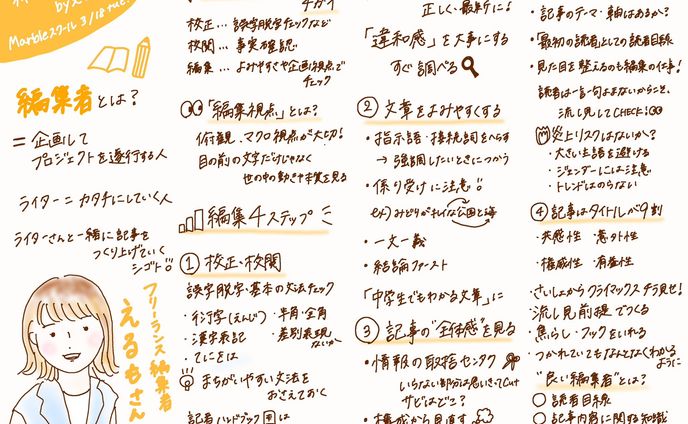 Marbleスクール 3/18 tue.
編集者とは?
= 企画して
プロジェクトを遂行する人
ライター = カタチにしていく人
ライターさんと一緒に記事を
つくり上げていく
シゴト!!
フリーランス編集者
えるもさん
チガイ
校正… 誤字脱字チェックなど
校閲… 事実確認
編集… よみやすさや企画視点で
チェック
「編集視点」とは?
俯観、マクロ視点が大切!
目の前の文字だけじゃなく
世の中の動きや本質を見る
編集4ステップ
① 校正・校閲
誤字脱字・基本の文法チェック
・衍字(えんじ) ・半角・全角
・漢字表記 ・差別表現
ないか
・てにをは
まちがいやすい文法を
おさえておく
記者ハンドブック は
正しく・最新に!
「違和感」を大事にする
すぐ調べる
② 文章をよみやすくする
・指示語・接続詞をへらす
→ 強調したいときにつかう
・係り受けに注意!!
ex) みどりがキレイな公園と海
・一文一義
・結論ファースト
「中学生でもわかる文章」に
③ 記事の“全体感”を見る
・情報の取捨センタク
いらない部分は思いきってCut
サビはどこ?
・構成から見直す
・記事のテーマ・軸はあるか?
・「最初の読者」としての読者目線
・見た目を整えるのも編集の仕事!
読者は一言一句よまないからこそ、
流し見してCHECK!
炎上リスクはないか?
・大きい主語を避ける
・ジェンダーには注意
・トレンドはのらない
④ 記事はタイトルが9割
・共感性 ・意外性
・権威性 ・有益性
・さいしょからクライマックスチラ見せ!
・流し見前提でつくる
・焦らし・フックをいれる
・つかれていてもなんとなくわかる
ように
“良い編集者”とは?
○ 読者目線
○ 記事内容に関する知識